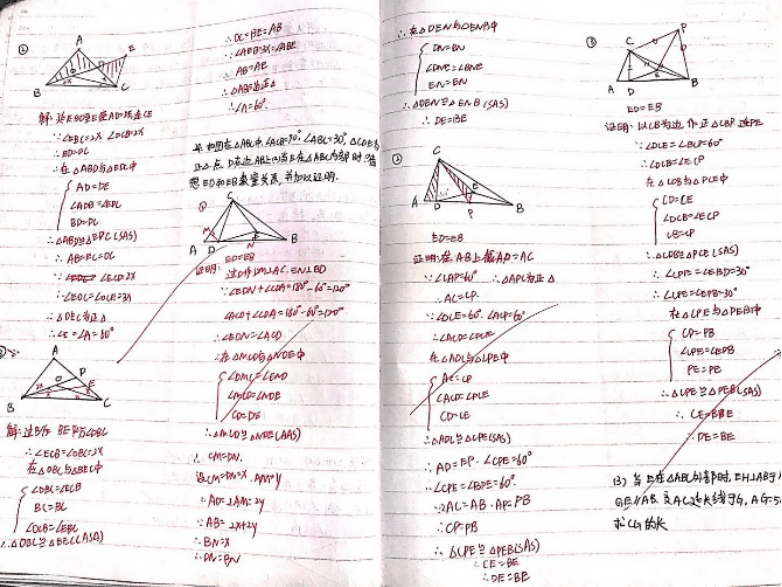 ②
A
E
B
C
∴∠EBC=2x ∠DCB=2x
∴ED=DC
∴在△ABD与△EDC中
AD=DE
∠ADB=∠EDC
BD=DC
∴△ABD≌△EDC(SAS)
∴AB=EC=DC
∠ECD=2x
∴∠EDC=∠DCE=3x
∴∠E=∠A=60°
A
P
D
E
B
C
∴∠ECB=∠DBC=2x
在△DBC与△BEC中
∠DBC=∠ECB
BC=BC
∠DCB=∠EBC
∴△DBC≌△BEC(ASA)
∴DC=BE=AB
∴AB=AE
∴∠A=60°
如图在△ABC中,∠ACB=90°,∠ABC=30°,△CDE为
想ED和EB数量关系,并加以证明.
①
C
M
E
A
D
N
B
ED=EB
证明:过D作DM⊥AC,EN⊥BD
∵∠EDN+∠CDA=180°-60°=120°
∠ACD+∠CDA=180°-60°=120°
∴∠EDN=∠ACD
∴在△MCD与△NDE中
∠DMC=∠END
∠MCD=∠NDE
CD=DE
∴△MCD≌△NDE(AAS)
∴CM=DN.
设CM=DN=x AM=y
∴AD=2AM=2y
∴AB=2x+2y
∴BN=x
∴DN=BN
∴在△DEN与△ENB中
DN=BN
∠DNE=∠BNE
EN=EN
∴△DEN≌△ENB(SAS)
∴DE=BE
②
C
E
A
D
P
B
ED=EB
证明:在AB上截AP=AC
∵∠CAP=60° ∴△APC为正△
∴AC=CP.
∵∠DCE=60° ∠ACP=60°
∴∠ACD=∠PCE
在△ADC与△CPE中
AC=CP
∠ACD=∠PCE
CD=CE
∴△ADC≌△CPE(SAS)
∴AD=EP ∠CPE=60°
∴∠CPE=∠EPB=60°
∵2AC=AB AP=PB
∴CP=PB
∴△CPE≌△PEB(SAS)
∴CE=BE
∴DE=BE
③
P
C
E
A
D
B
ED=EB
证明:以CB为边作正△CBP 连PE
∵∠DCE=∠BCP=60°
∴∠DCB=∠ECP
在△CDB与△PCE中
CD=CE
∠DCB=∠ECP
CB=CP
∴△CDB≌△PCE(SAS)
∴∠CPE=∠CBD=30°
∴∠CPE=∠EPB=30°
在△CPE与△PEB中
CP=PB
∠CPE=∠EPB
PE=PE
∴△CPE≌△PEB(SAS)
∴DE=BE
(3) 当E在△ABC外部时,EH⊥AB于
GE∥AB 交AC延长线于G,
求CG的长